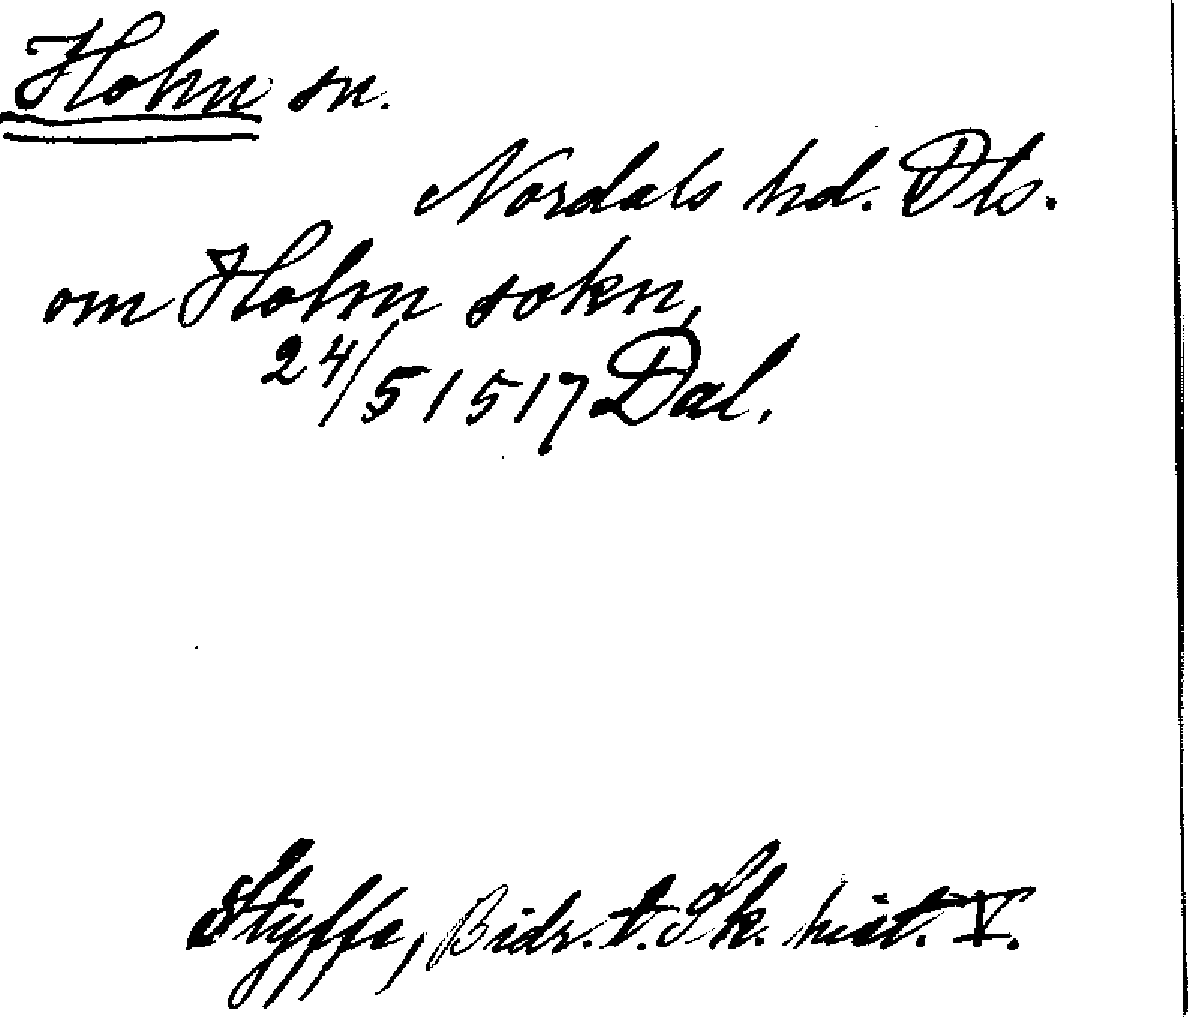 Holm sn.
Nordals hd. Dls.
om Holm sokn,
24/5 1517 Dal.
Styffe, Bidr. t. Sk. hist. V.